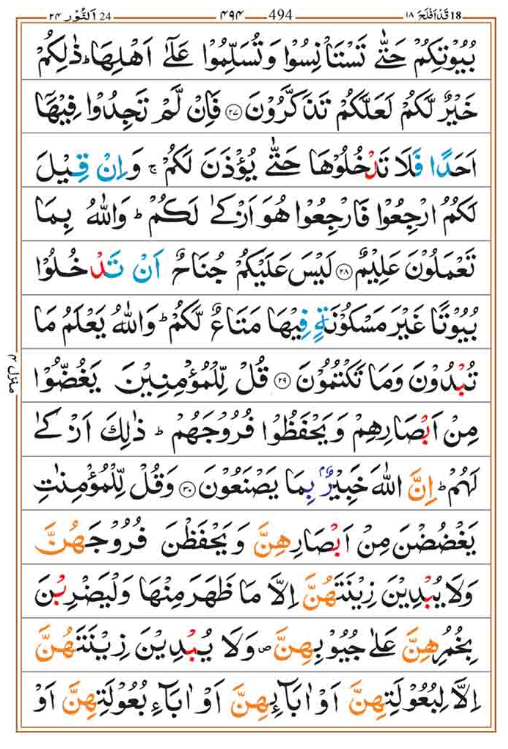 18 قَدْ اَفْلَحَ ١٨ 494 ۴۹۴ 24 اَلنُّوْر ٢۴
بُيُوْتِكُمْ حَتّٰى تَسْتَاْنِسُوْا وَتُسَلِّمُوْا عَلٰٓى اَهْلِهَا ؕ ذٰلِكُمْ
خَيْرٌ لَّكُمْ لَعَلَّكُمْ تَذَكَّرُوْنَ ۝۲۷ فَاِنْ لَّمْ تَجِدُوْا فِيْهَاۤ
اَحَدًا فَلَا تَدْخُلُوْهَا حَتّٰى يُؤْذَنَ لَكُمْ ۚ وَاِنْ قِيْلَ
لَكُمُ ارْجِعُوْا فَارْجِعُوْا هُوَ اَزْكٰى لَكُمْ ؕ وَاللّٰهُ بِمَا
تَعْمَلُوْنَ عَلِيْمٌ ۝۲۸ لَيْسَ عَلَيْكُمْ جُنَاحٌ اَنْ تَدْخُلُوْا
بُيُوْتًا غَيْرَ مَسْكُوْنَةٍ فِيْهَا مَتَاعٌ لَّكُمْ ؕ وَاللّٰهُ يَعْلَمُ مَا
تُبْدُوْنَ وَمَا تَكْتُمُوْنَ ۝۲۹ قُلْ لِّلْمُؤْمِنِيْنَ يَغُضُّوْا
مِنْ اَبْصَارِهِمْ وَيَحْفَظُوْا فُرُوْجَهُمْ ؕ ذٰلِكَ اَزْكٰى
لَهُمْ ؕ اِنَّ اللّٰهَ خَبِيْرٌۢ بِمَا يَصْنَعُوْنَ ۝۳۰ وَقُلْ لِّلْمُؤْمِنٰتِ
يَغْضُضْنَ مِنْ اَبْصَارِهِنَّ وَيَحْفَظْنَ فُرُوْجَهُنَّ
وَلَا يُبْدِيْنَ زِيْنَتَهُنَّ اِلَّا مَا ظَهَرَ مِنْهَا وَلْيَضْرِبْنَ
بِخُمُرِهِنَّ عَلٰى جُيُوْبِهِنَّ ۪ وَلَا يُبْدِيْنَ زِيْنَتَهُنَّ
اِلَّا لِبُعُوْلَتِهِنَّ اَوْ اٰبَآئِهِنَّ اَوْ اٰبَآءِ بُعُوْلَتِهِنَّ اَوْ
منزل ۴